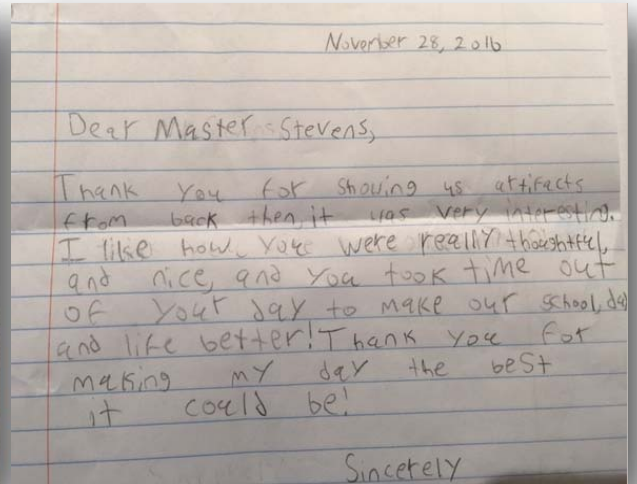 November 28, 2016
Dear Master Stevens,
Thank you for showing us artifacts
from back then, it was very interesting.
I like how you were really thoughtful,
and nice, and you took time out
of your day to make our school, day
and life better! Thank you for
making my day the best
it could be!
Sincerely